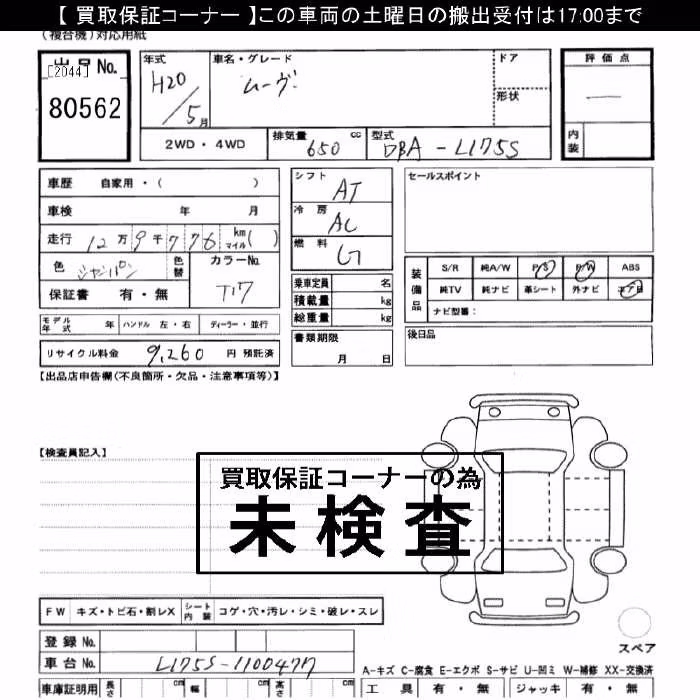 【 買取保証コーナー 】この車両の土曜日の搬出受付は17:00まで
(複合機)対応用紙
出品No. [2044] 80562
年式 H20/5月 車名・グレード ムーヴ ドア 形状 評価点 ―
2WD・4WD 排気量 650 cc 型式 DBA-L175S 内装
車歴 自家用・( )
車検 年 月
走行 12万9千776 km マイル ( )
色 シャンパン 色替 カラーNo. T17
保証書 有・無
シフト AT
冷房 AC
燃料 G
セールスポイント
乗車定員 名
積載量 kg
総重量 kg
装備品 S/R 純A/W P/S P/W ABS
純TV 純ナビ 革シート 外ナビ エア目
ナビ型番:
モデル年式 年 ハンドル 左・右 ディーラー・並行
書類期限 月 日
後日品
リサイクル料金 9,260 円 預託済
【出品店申告欄(不良箇所・欠品・注意事項等)】
【検査員記入】
買取保証コーナーの為
未検査
FW キズ・トビ石・割レX シート内装 コゲ・穴・汚レ・シミ・破レ・スレ
登録 No.
車台 No. L175S-1100477
スペア
A-キズ C-腐食 E-エクボ S-サビ U-凹ミ W-補修 XX-交換済
車庫証明用 長さ cm 幅 cm 高さ cm
工具 有・無 ジャッキ 有・無